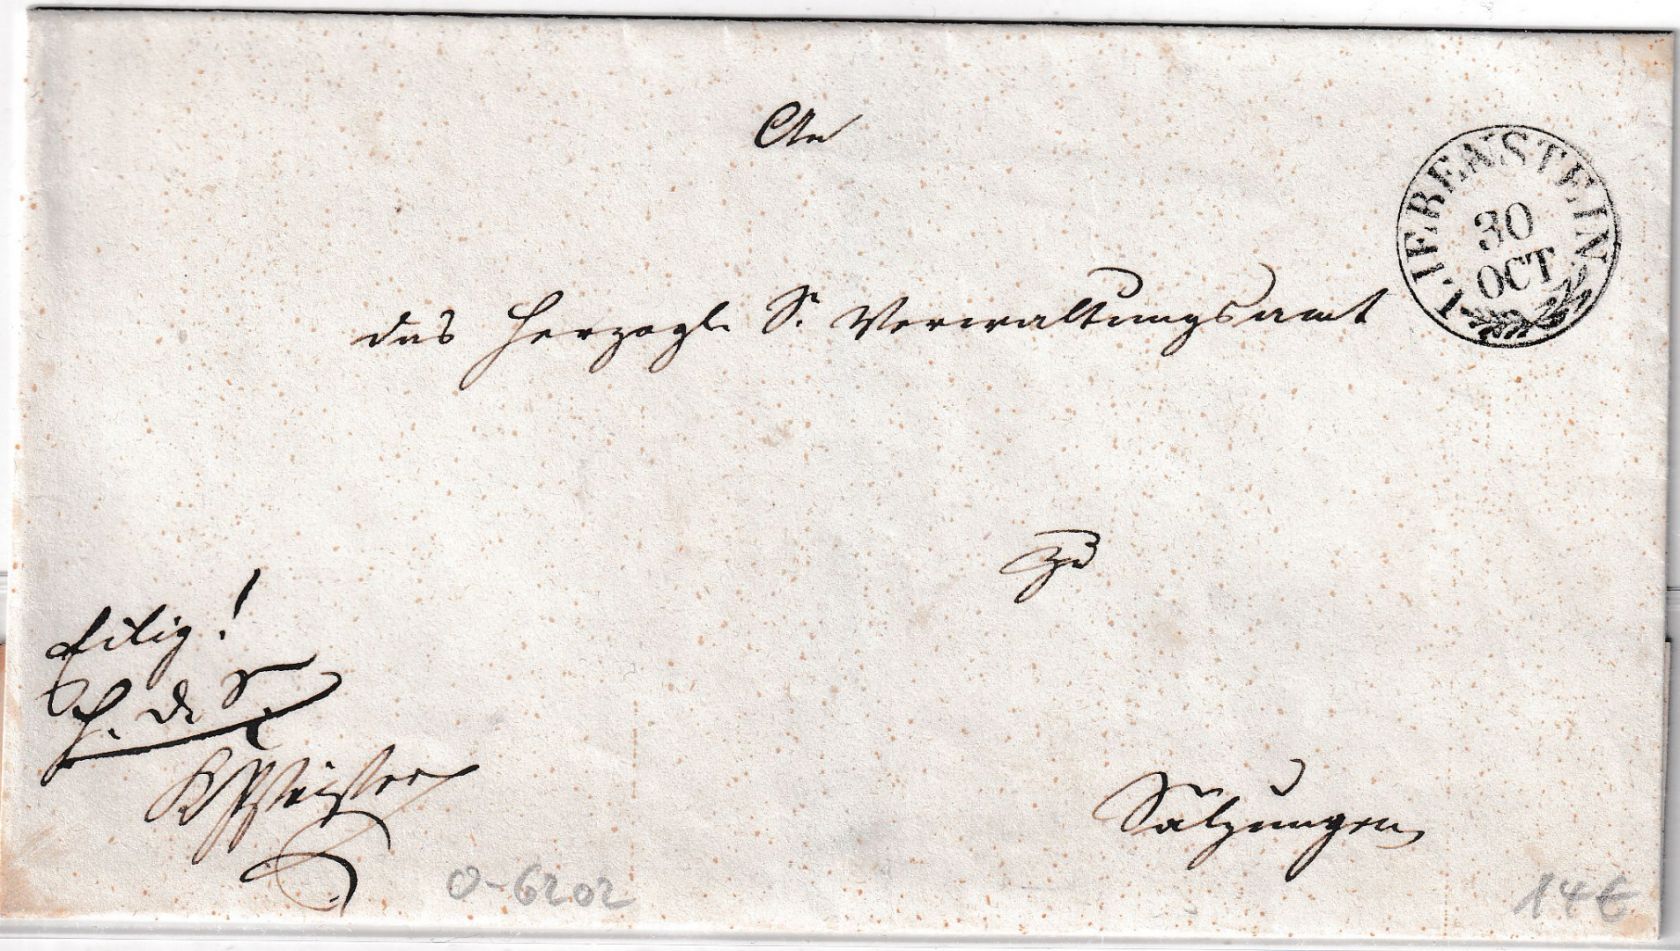 An
LIEBENSTEIN
30
OCT
das Herzogl. S. Verwaltungsamt
zu
Eilig!
H. d. S.
Salzungen
0-6202
14€